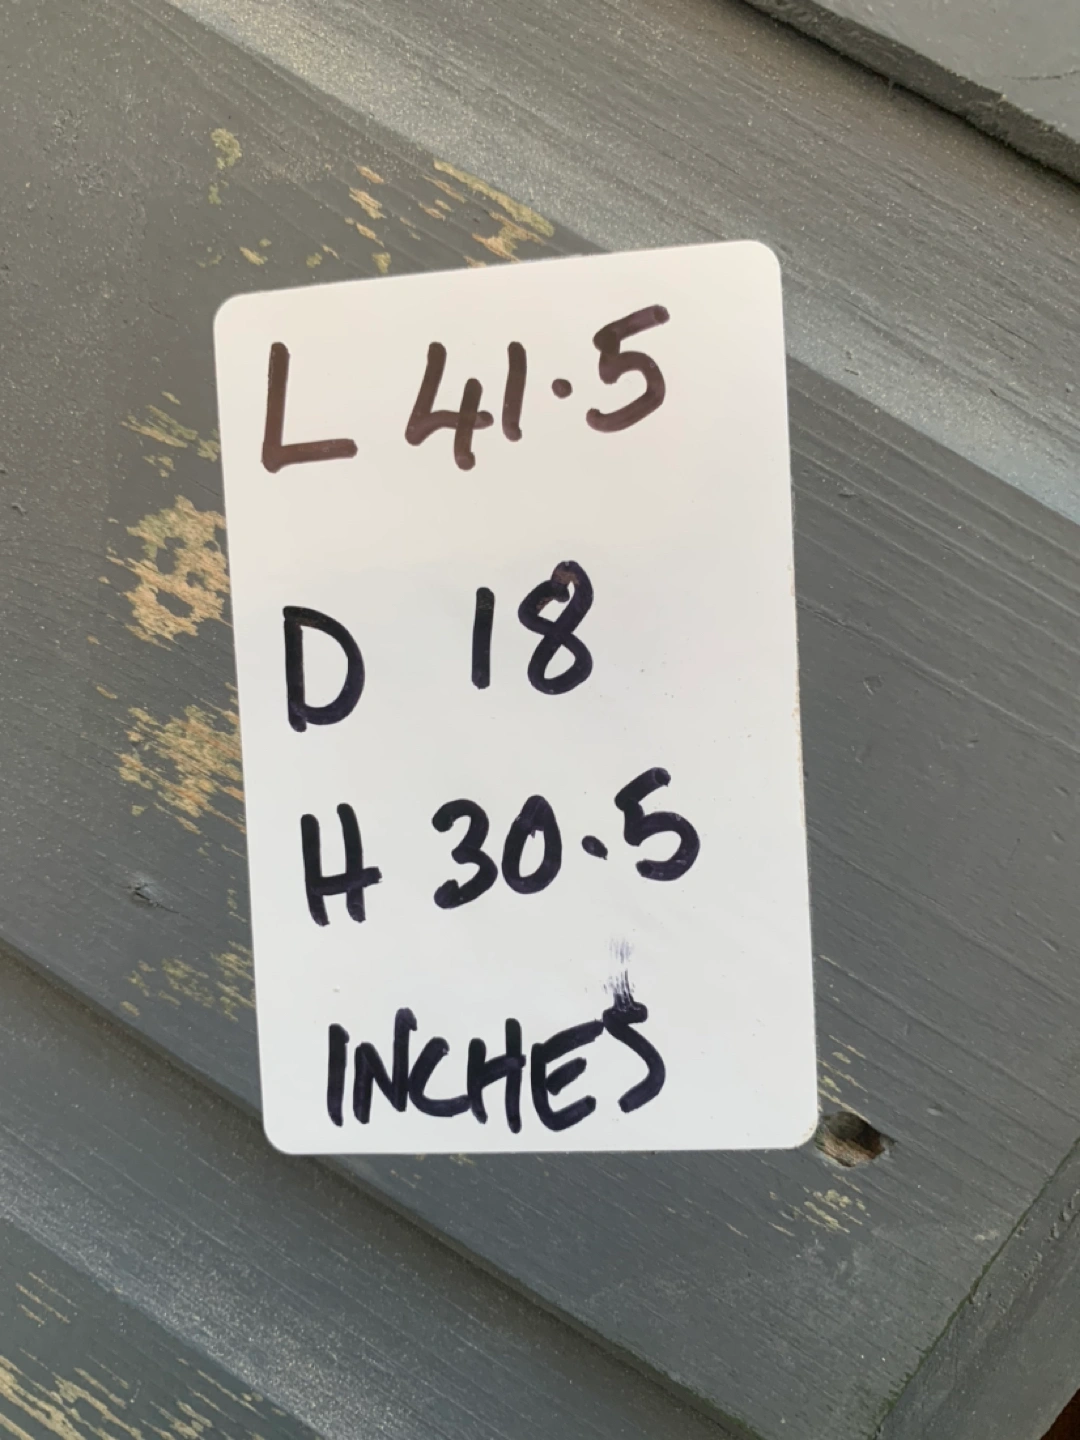 L 41.5
D 18
H 30.5
INCHES